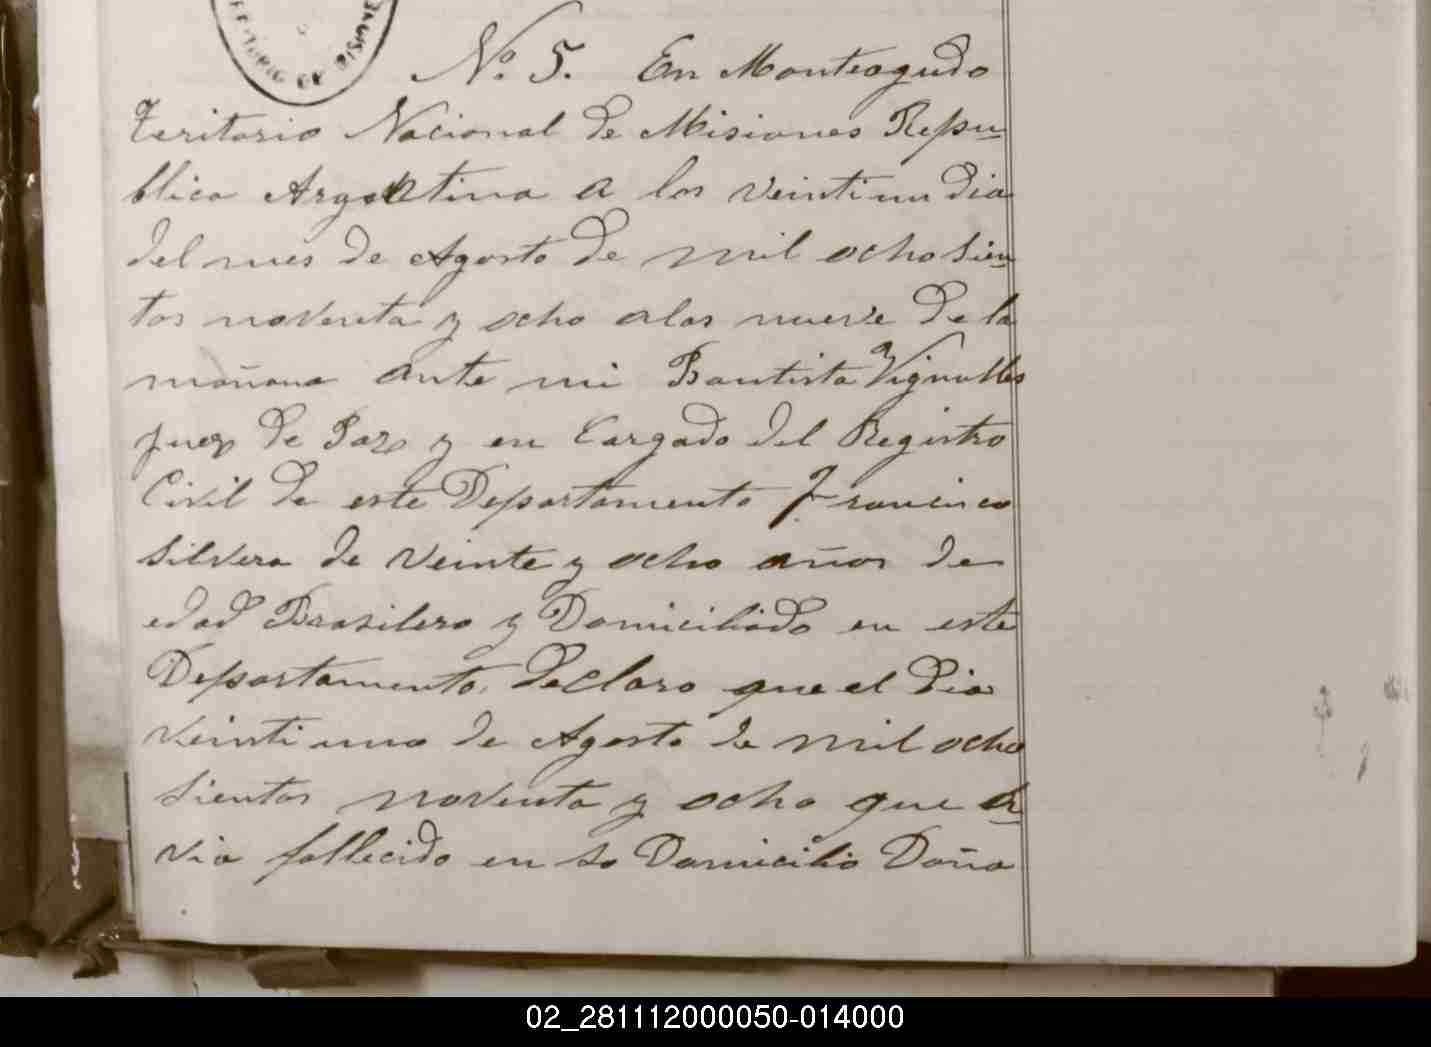 No. 5. En Monteagudo
Teritorio Nacional de Misiones Repu-
blica Argentina a los veintiun dia
del mes de Agosto de mil ocho sien-
tos noventa y ocho alas nueve de la
mañana ante mi Bautista Vignolles
juez de Paz y en Cargado del Registro
Civil de este Departamento Francisco
Silvera de veinte y ocho años de
edad Brasilero y Domiciliado en este
Departamento, declaro que el dia
veintiuno de Agosto de mil ocho
sientos noventa y ocho que
via fallecido en so Domicilio Doña
02_281112000050-014000